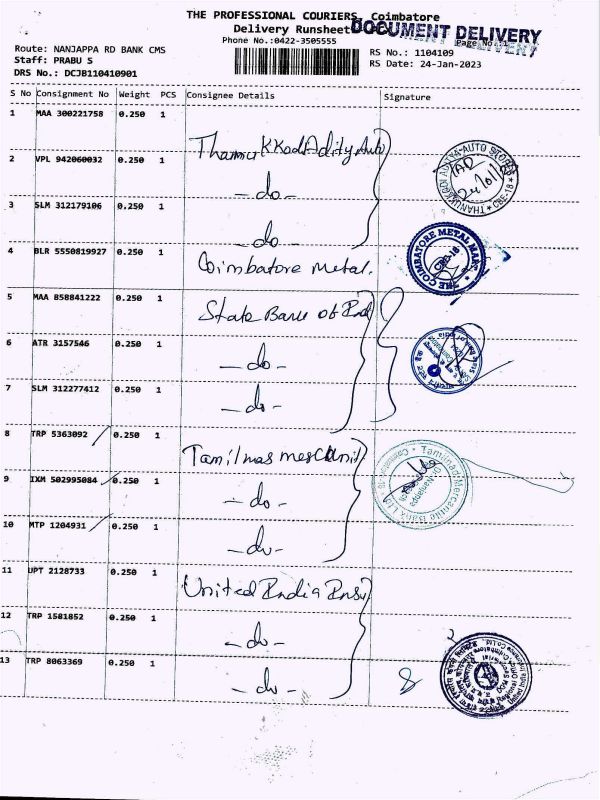 THE PROFESSIONAL COURIERS, Coimbatore
Delivery Runsheet
DOCUMENT DELIVERY
Phone No.:0422-3505555
Page No.
Route: NANJAPPA RD BANK CMS
RS No.: 1104109
Staff: PRABU S
RS Date: 24-Jan-2023
DRS No.: DCJB110410901
S No Consignment No Weight PCS Consignee Details Signature
1 MAA 300221758 0.250 1
2 VPL 942060032 0.250 1 -do-
3 SLM 312179106 0.250 1 -do-
4 BLR 5550819927 0.250 1 Coimbatore Metal.
THE COIMBATORE METAL MART
CBE-18
5 MAA 858841222 0.250 1 State Bank of Ind
6 ATR 3157546 0.250 1 -do-
7 SLM 312277412 0.250 1 -do-
8 TRP 5363092 0.250 1
Tamilnad Mercantile Bank Ltd
9 IXM 502995084 0.250 1 -do-
10 MTP 1204931 0.250 1 -do-
11 UPT 2128733 0.250 1 United India Insu
12 TRP 1581852 0.250 1 -do-
13 TRP 8063369 0.250 1 -do-